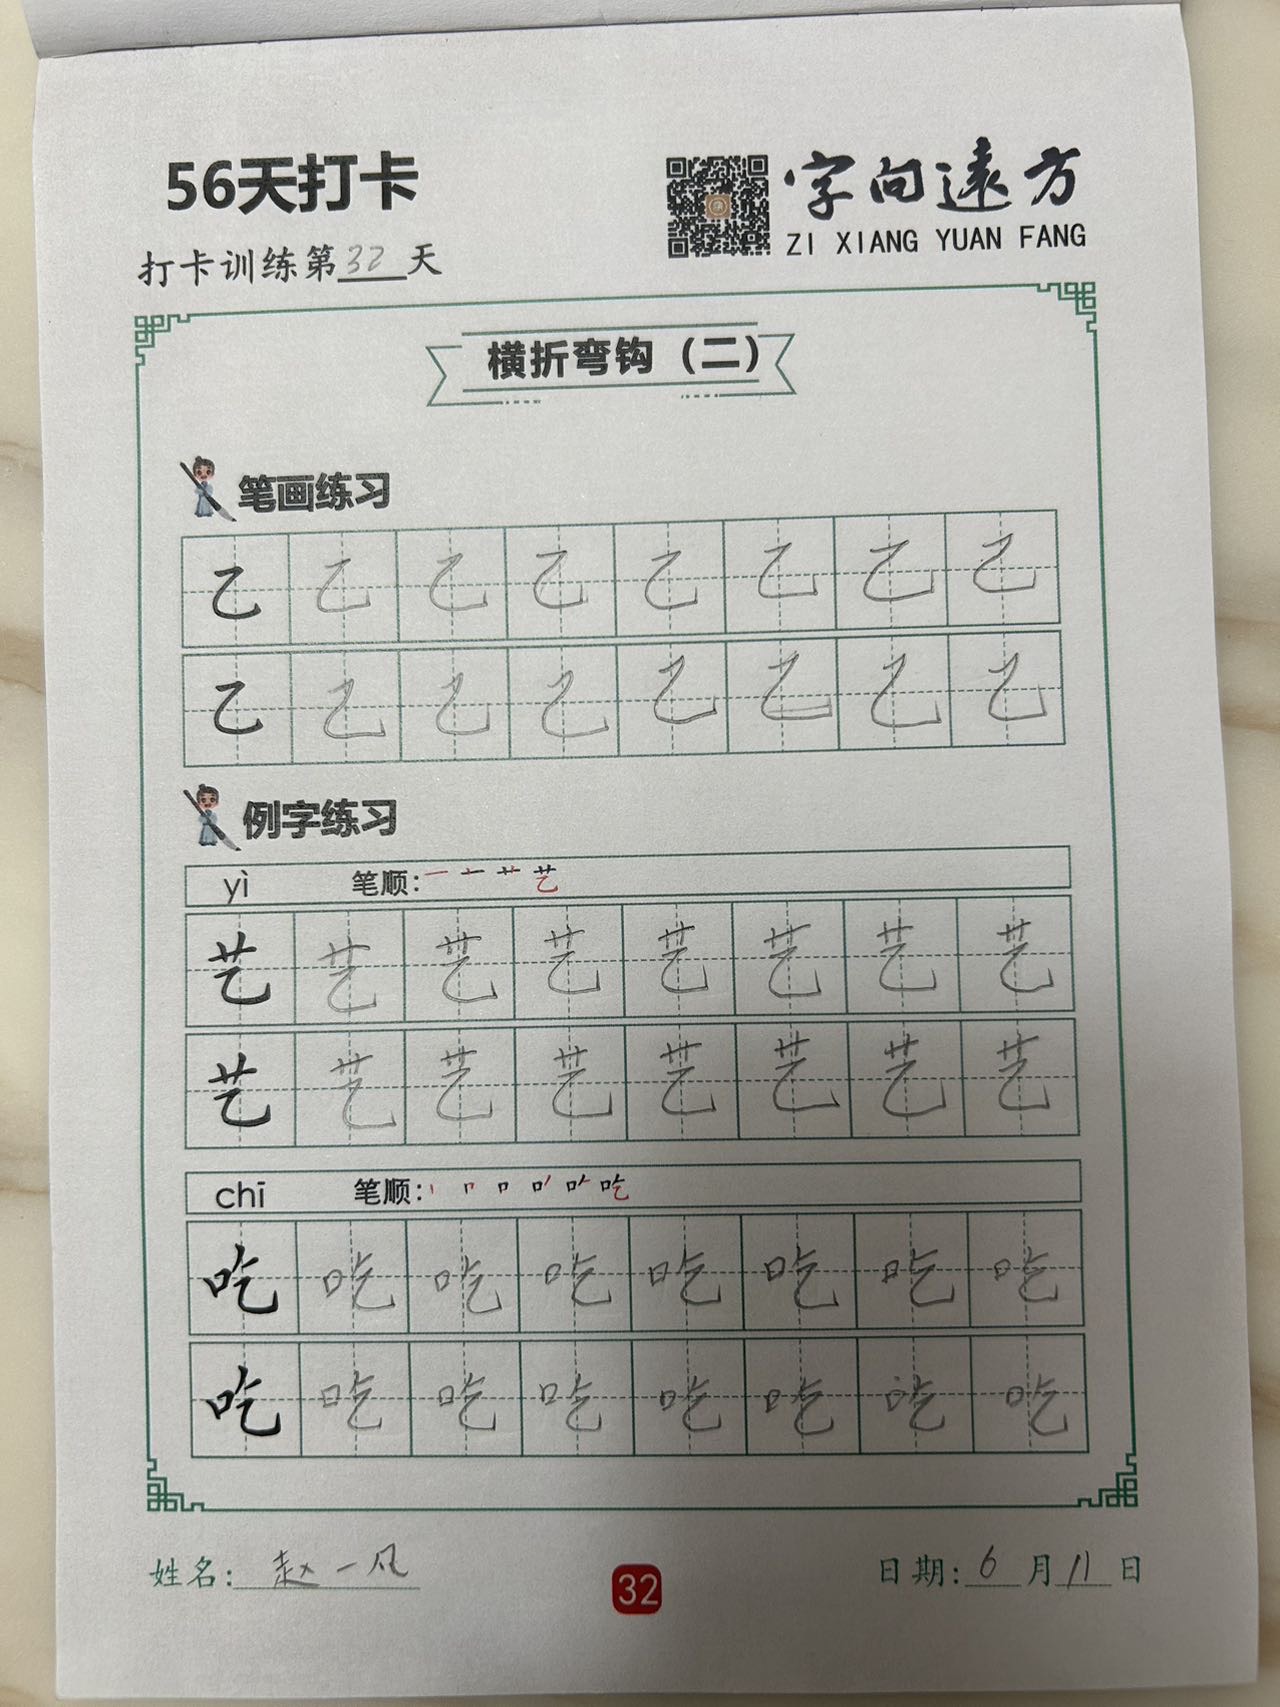 56天打卡
字向遠方
ZI XIANG YUAN FANG
打卡训练第32天
横折弯钩（二）
笔画练习
乙乙乙乙乙乙乙乙
乙乙乙乙乙乙乙乙
例字练习
yì 笔顺：一 十 艹 艺
艺艺艺艺艺艺艺艺
艺艺艺艺艺艺艺艺
chī 笔顺：丨 𠃍 口 口丿 吃
吃吃吃吃吃吃吃吃
吃吃吃吃吃吃吃吃
姓名：赵一风
32
日期：6月11日